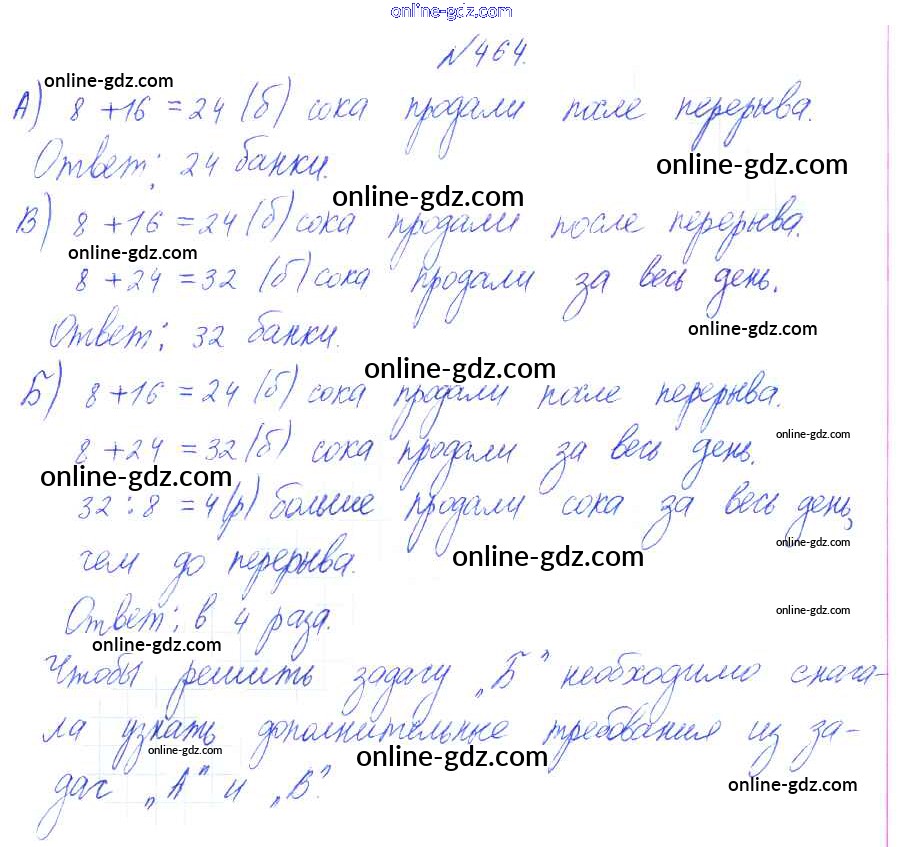 online-gdz.com
№464.
online-gdz.com
А) 8 + 16 = 24 (б) сока продали после перерыва.
Ответ: 24 банки.
online-gdz.com
online-gdz.com
В) 8 + 16 = 24 (б) сока продали после перерыва.
online-gdz.com
8 + 24 = 32 (б) сока продали за весь день.
Ответ: 32 банки.
online-gdz.com
online-gdz.com
Б) 8 + 16 = 24 (б) сока продали после перерыва.
8 + 24 = 32 (б) сока продали за весь день.
online-gdz.com
online-gdz.com
32 : 8 = 4 (р) больше продали сока за весь день,
online-gdz.com
чем до перерыва.
online-gdz.com
Ответ: в 4 раза.
online-gdz.com
online-gdz.com
Чтобы решить задачу „Б" необходимо снача-
ла узнать дополнительные требования из за-
online-gdz.com
online-gdz.com
дач „А" и „В".
online-gdz.com